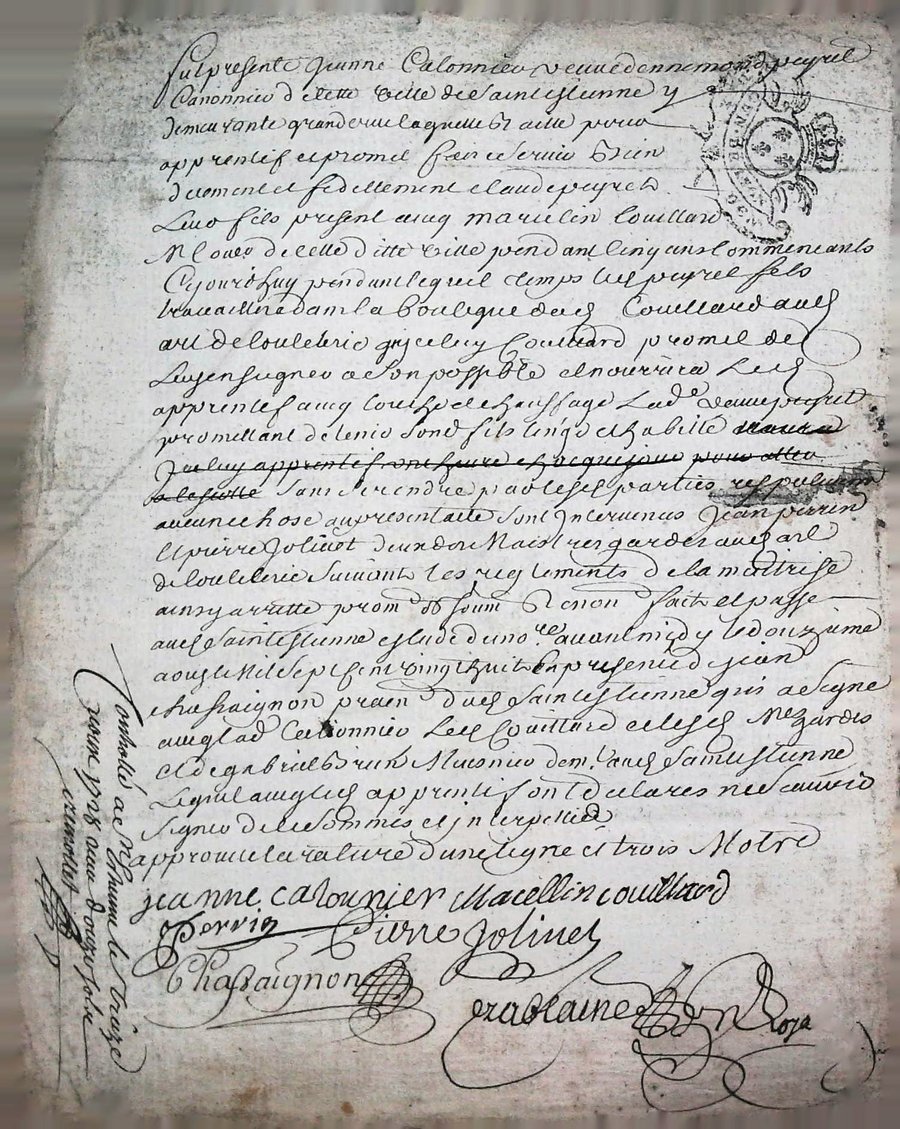 fut presente jeanne Calonnier veuve dennemond peyret
Canonnier de cette ville de Saint estienne y
demeurante grande rue laquelle
apprentif et promet faire servir bien
duement et fidellement claude peyret
Son fils present avecq marcelin Couillard
de cette ditte ville pendant cinq ans Commencants
Cejourdhuy pendant lequel temps led peyret fils
travaillera dans la boutique dud Couillard aud
art de coutelerie qu jceluy Couillard promet de
luy enseigner a son possible et nourrira led
apprentif avecq couche et chauffage lad.e veuve peyret
promettant de tenir sond fils linge et habille
jceluy apprentif une heure chacque jour pour aller
a lescolle sans se rendre par lesd parties
aucune chose au present acte sont jntervenus jean perrin
et pierre jolivet deux des Maistres gardes aud art
de coutelerie suivant les reglements de la maitrise
ainsy arrette prom ob soum Renon fait et passe
aud Saint estienne estude du no.re avant midy le douzieme
aoust Mil Sept cent vingt huit en presence de jean
chasaignon pratn dud Saint estienne quis a signe
avecq lad Calonnier led Couillard et lesd M.es gardes
et de gabriel brun Musnier dem.t aud Saint estienne
lequel avecq led apprentif ont declares ne scavoir
signer de ce sommes et jnterpelles
approuve la rature dune ligne et trois Motre
jeanne calonnier Macellin couillard
perrin pierre jolivet
Chasaignon
Controllé a St Estienne le treize
aoust 1728 recu douze sols